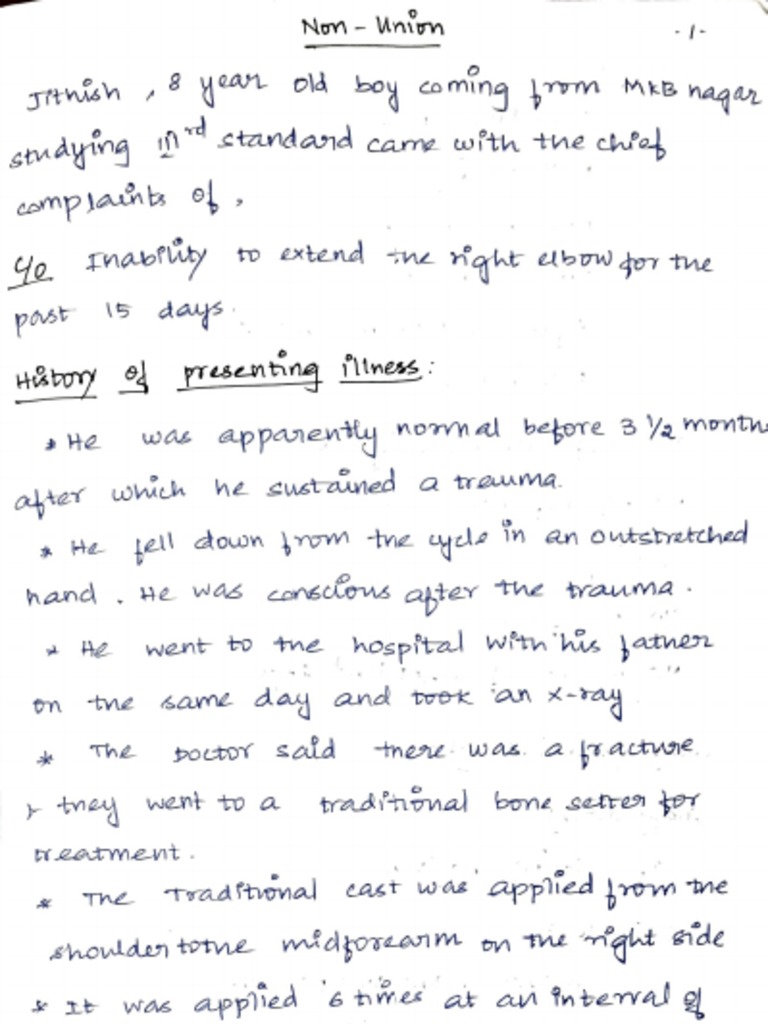 Non - Union -1-
Jithish, 8 year old boy coming from MKB nagar
studying IIIrd standard came with the chief
complaints of,
C/o Inability to extend the right elbow for the
past 15 days.
History of presenting illness:
* He was apparently normal before 3 1/2 month
after which he sustained a trauma.
* He fell down from the cycle in an outstretched
hand. He was conscious after the trauma.
* He went to the hospital with his father
on the same day and took an x-ray
* The Doctor said there was a fracture
* they went to a traditional bone setter for
treatment.
* The Traditional cast was applied from the
shoulder to the midforearm on the right side
* It was applied 6 times at an interval of